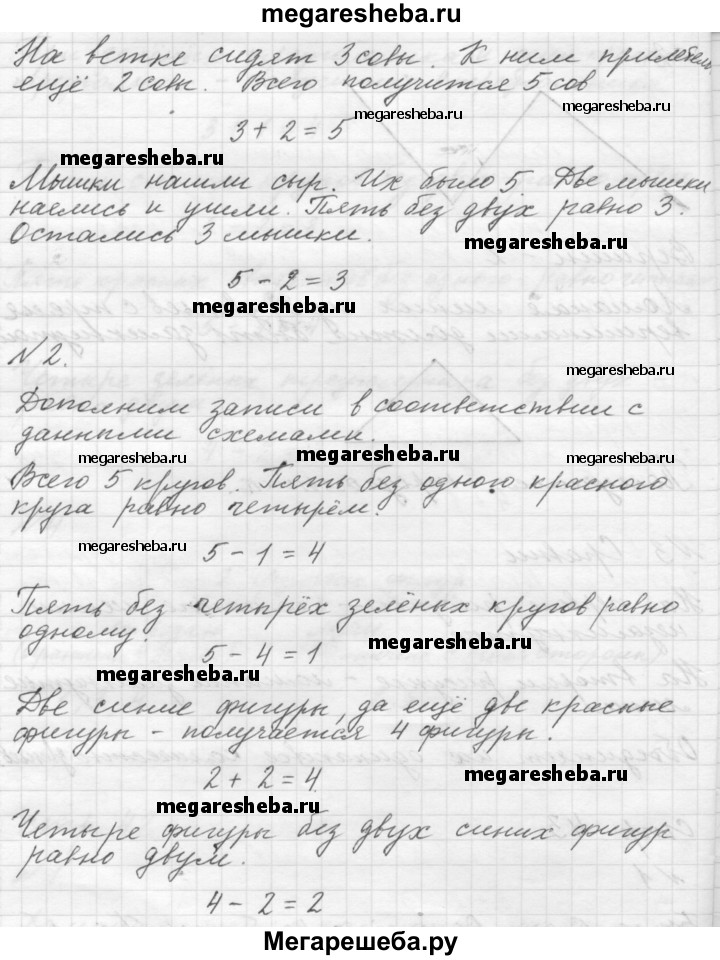 megaresheba.ru
На ветке сидят 3 совы. К ним прилетели
ещё 2 совы. Всего получится 5 сов
megaresheba.ru
3 + 2 = 5
megaresheba.ru
megaresheba.ru
Мышки нашли сыр. Их было 5. Две мышки
наелись и ушли. Пять без двух равно 3.
Остались 3 мышки.
megaresheba.ru
5 - 2 = 3
megaresheba.ru
№ 2.
megaresheba.ru
Дополним записи в соответствии с
данными схемами.
megaresheba.ru megaresheba.ru megaresheba.ru
Всего 5 кругов. Пять без одного красного
круга равно четырём.
megaresheba.ru
5 - 1 = 4
Пять без четырёх зелёных кругов равно
одному.
megaresheba.ru
5 - 4 = 1
megaresheba.ru
Две синие фигуры, да ещё две красные
фигуры - получается 4 фигуры.
2 + 2 = 4
megaresheba.ru
megaresheba.ru
Четыре фигуры без двух синих фигур
равно двум.
4 - 2 = 2
Мегарешеба.ру